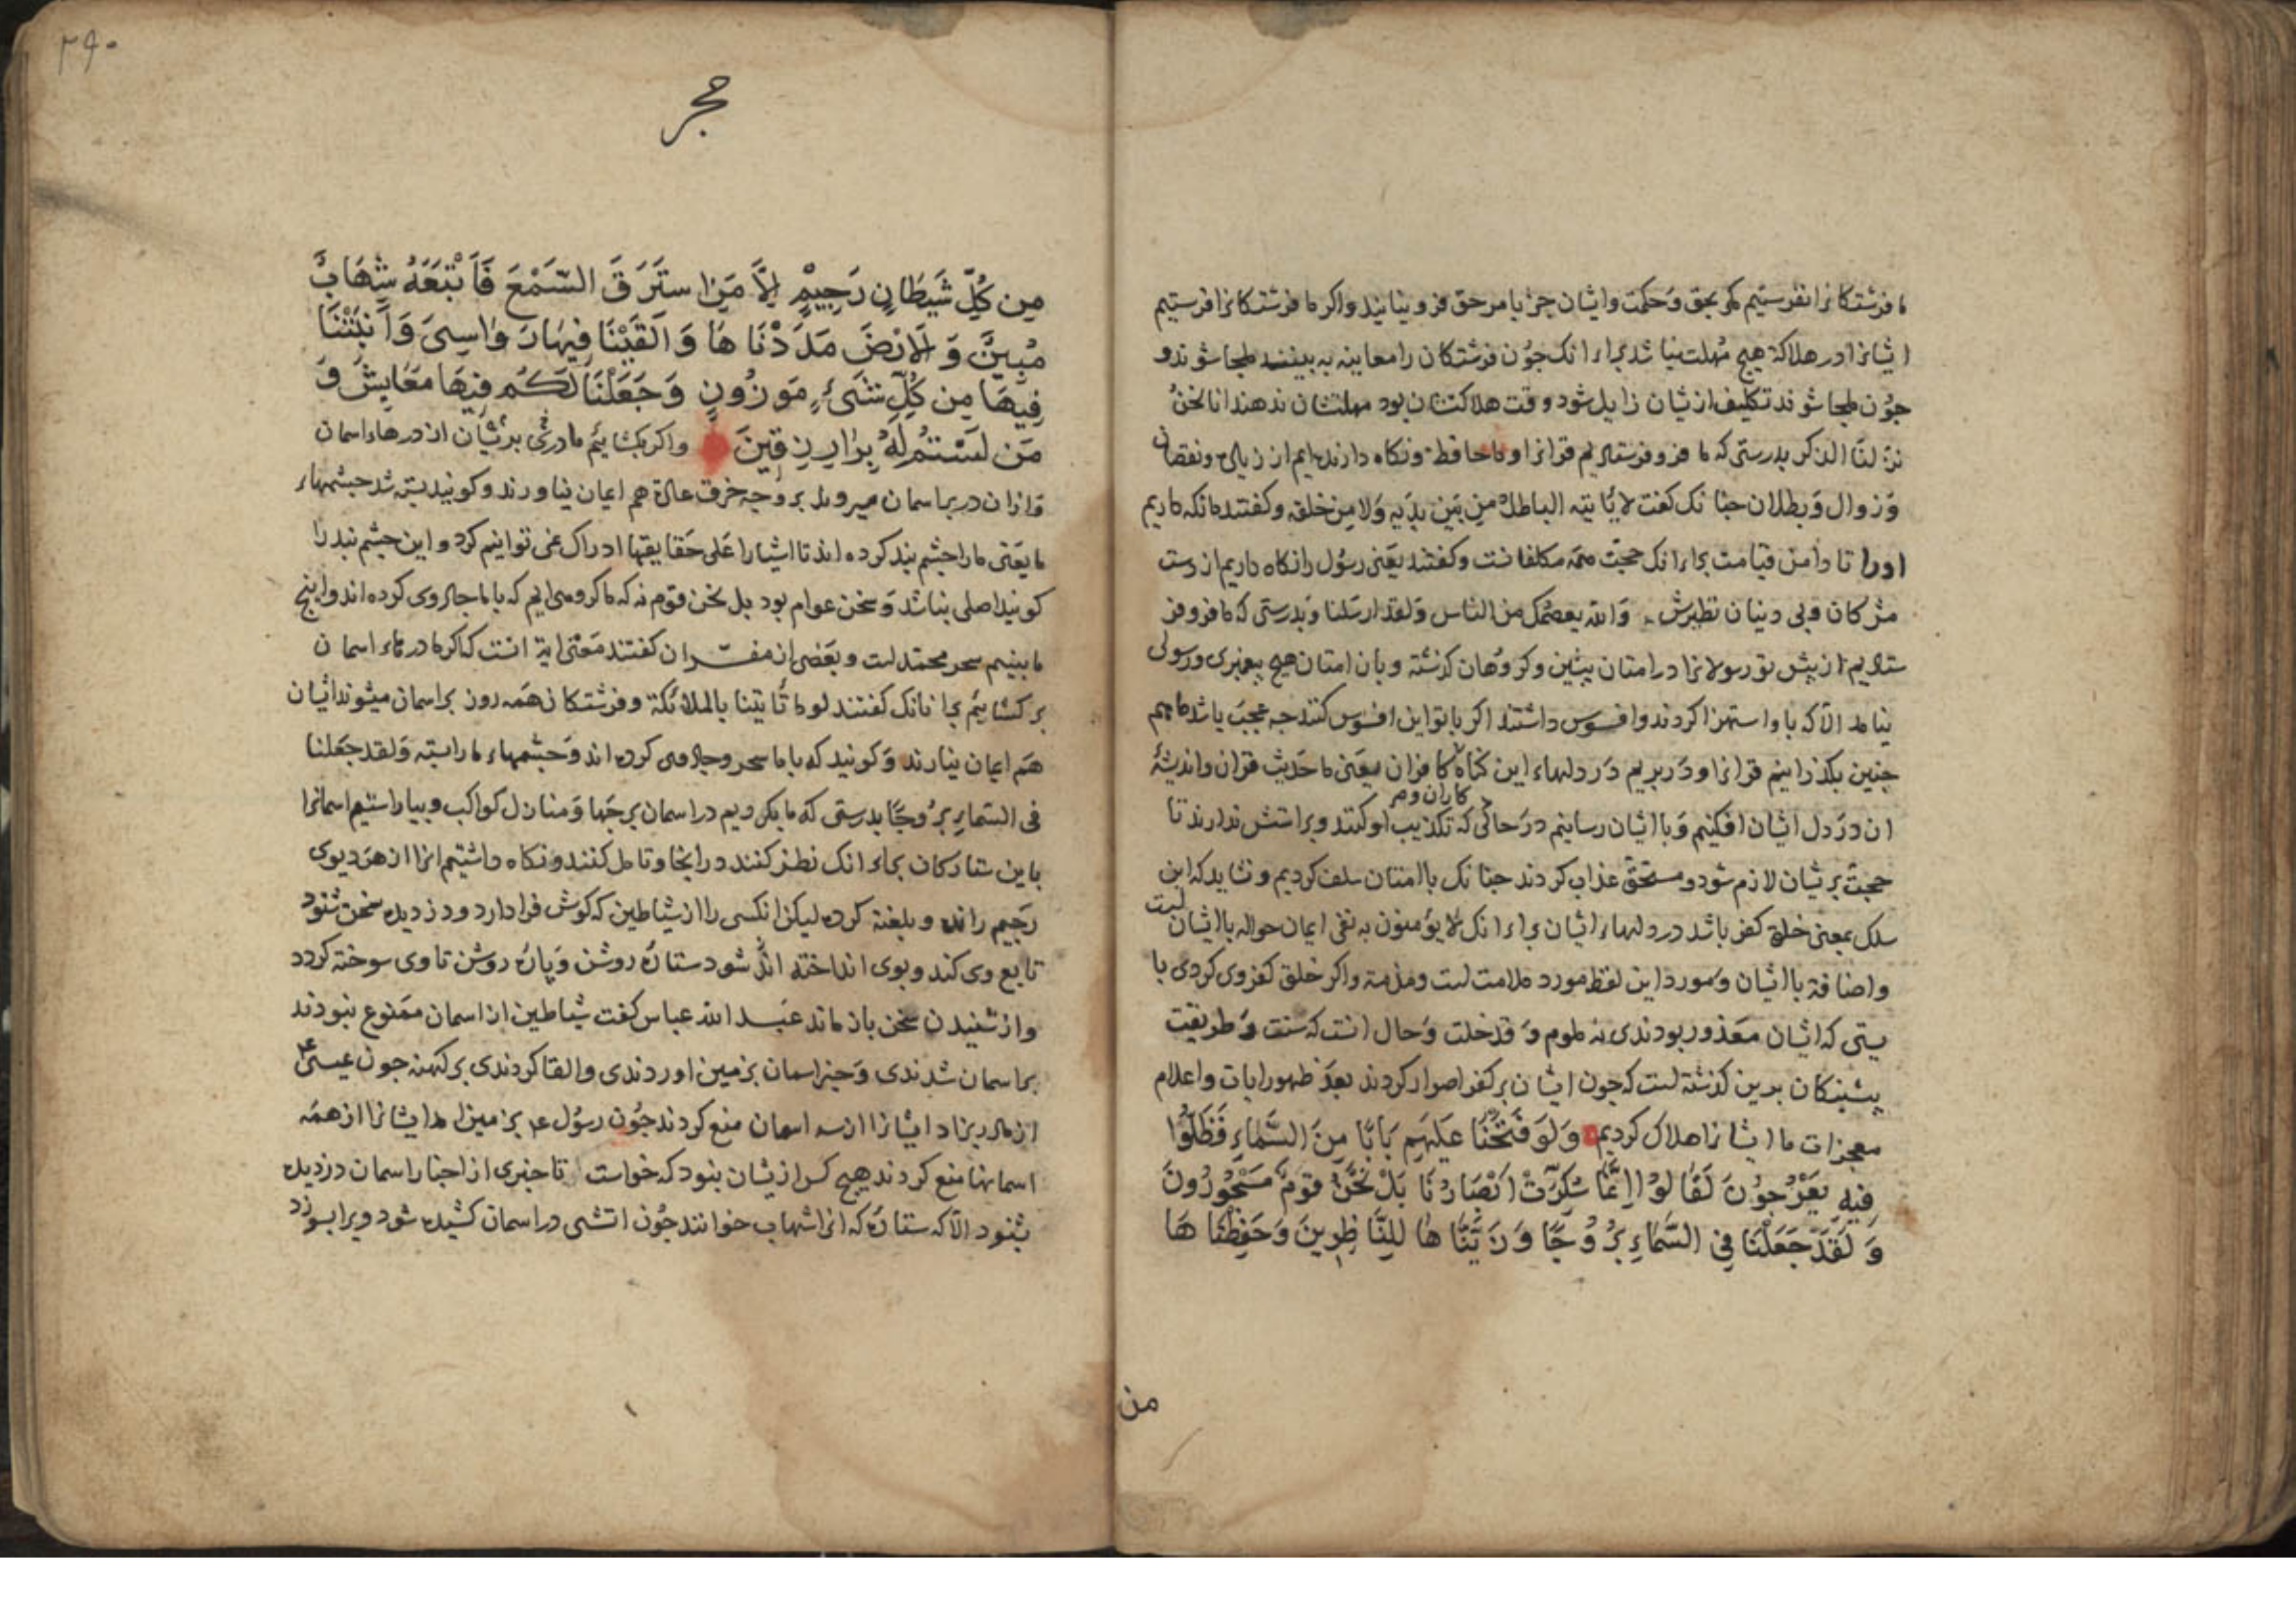 ما فرشتکانرا نفرستیم مکر بحق وحکمت وایشان جز بامر حق فرونیایند واکر ما فرشتکانرا فرستیم
ایشانرا در هلاکة هیچ مهلت نباشد براء انک جون فرشتکان را معاینه به بینند ملجا شوند و
جون ملجا شوند تکلیف ازیشان زایل شود و وقت هلاکتشان بود مهلتشان ندهند انا نحن
نزلنا الذکر بدرستی که ما فرو فرستادیم قرانرا و ما حافظ ونکاه دارنده ایم از زیادی ونقصان
وزوال وبطلان جنانک کفت لا یأتیه الباطل من بین یدیه ولا من خلفه وکفتند ما نکه داریم
اورا تا دامن قیامت براء انک حجت همه مکلفانست وکفتند یعنی رسول را نکاه داریم از دست
مشرکان وبی دینان نظیرش والله یعصمک من الناس ولقد ارسلنا وبدرستی که ما فرو فر
ستادیم از پیش تو رسولانرا در امتان پیشین وکروهان کذشته وبان امتان هیچ پیغمبری ورسولی
نیامد الا که با او استهزا کردند وافسوس داشتند اکر با تو این افسوس کنند جه عجب باشد ما هم
جنین بکذرانیم قرانرا ودر بریم در دلهاء این کناه کافران یعنی ما حدیث قران واندیشۀ
کاران و مر
ان در دل ایشان افکنیم وبا ایشان رسانیم در حالی که تکذیب او کنند وبراستش ندارند تا
حجت بریشان لازم شود ومستحق عذاب کردند جنانک با امتان سلف کردیم ونشاید که این
سلک بمعنی خلق کفر باشد در دلهاء ایشان براء انک لا یؤمنون به نفی ایمان حواله با ایشان است
واضافة با ایشان ومورد این لفظ مورد ملامت است ومذمة واکر خلق کفر وی کردی با
یستی که ایشان معذور بودندی نه ملوم وقد خلت وحال انست که سنت وطریقت
پیشینکان برین کذشته است که جون ایشان بر کفر اصرار کردند بعد ظهور ایات واعلام
معجزات ما ایشانرا هلاک کردیم وَلَوْ فَتَحْنَا عَلَیْهِم بَابًا مِنَ السَّمَاءِ فَظَلُّوا
فِیهِ یَعْرُجُونَ لَقَالُوا إِنَّمَا سُکِّرَتْ اَبْصَارُنَا بَلْ نَحْنُ قَوْمٌ مَسْحُورُونَ
وَلَقَدْ جَعَلْنَا فِی السَّمَاءِ بُرُوجًا وَزَیَّنَّاهَا لِلنَّاظِرِینَ وَحَفِظْنَاهَا
من
۳۹۰
حجر
مِن کُلِّ شَیْطَانٍ رَجِیمٍ إِلَّا مَنِ اسْتَرَقَ السَّمْعَ فَاَتْبَعَهُ شِهَابٌ
مُبِینٌ وَالْاَرْضَ مَدَدْنَاهَا وَاَلْقَیْنَا فِیهَا رَوَاسِیَ وَاَنْبَتْنَا
فِیهَا مِن کُلِّ شَیْءٍ مَوْزُونٍ وَجَعَلْنَا لَکُم فِیهَا مَعَایِشَ وَ
مَن لَسْتُمْ لَهُ بِرَازِقِینَ واکر بکشاییم ما دری بریشان از درهاء اسمان
وازان در بر اسمان میروند بر وجه خرق عادة هم ایمان نیاورند وکویند بسته شد جشمهاء
ما یعنی ما را جشم بند کرده اند تا اشیا را علی حقایقها ادراک نمی توانیم کرد و این جشم بند را
کویند اصلی نباشد وسخن عوام بود بل نحن قوم نه که ما کروهی ایم که با ما جادوی کرده اند واینچ
ما بینیم سحر محمد است وبعضی از مفسران کفتند معنی ایة انست که اکر ما درهاء اسمان
بر کشاییم بر انانک کفتند لو ما تأتینا بالملائکة وفرشتکان همه روز بر اسمان میشوند ایشان
هم ایمان نیارند وکویند که با ما سحر وجادوی کرده اند وجشمهاء ما را بسته ولقد جعلنا
فی السماء بروجًا بدرستی که ما بکردیم در اسمان برجها ومنازل کواکب وبیاراستیم اسمانرا
باین ستارکان براء انک نظر کنند درانجا وتامل کنند ونکاه داشتیم انرا از هر دیوی
رجیم رانده وبلعنة کرده لیکن انکسی را از شیاطین که کوش فرا دارد ودزدیده سخن شنود
تابع وی کند وبوی انداخته شود ستارۀ روشن وپارۀ روشن تا وی سوخته کردد
واز شنیدن سخن باز ماند عبد الله عباس کفت شیاطین از اسمان ممنوع نبودند
بر اسمان شدندی وخبر اسمان بزمین اوردندی والقا کردندی بر کهنه جون عیسی ع
از مادر بزاد ایشانرا از سه اسمان منع کردند جون رسول ع بزمین امد ایشانرا از همه
اسمانها منع کردند هیچ کس ازیشان نبود که خواست تا خبری از اخبار اسمان دزدیده
بشنود الا که ستارۀ که انرا شهاب خوانند جون اتشی در اسمان کشیده شود ویرا بسوزد